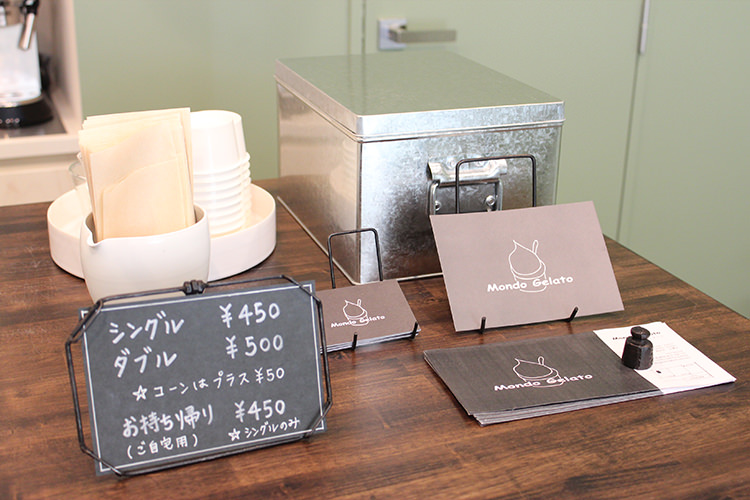 シングル ¥450
ダブル ¥500
☆コーンはプラス¥50
お持ち帰り ¥450
(ご自宅用) ☆シングルのみ
Mondo Gelato
Mondo Gelato
Mondo Gelato